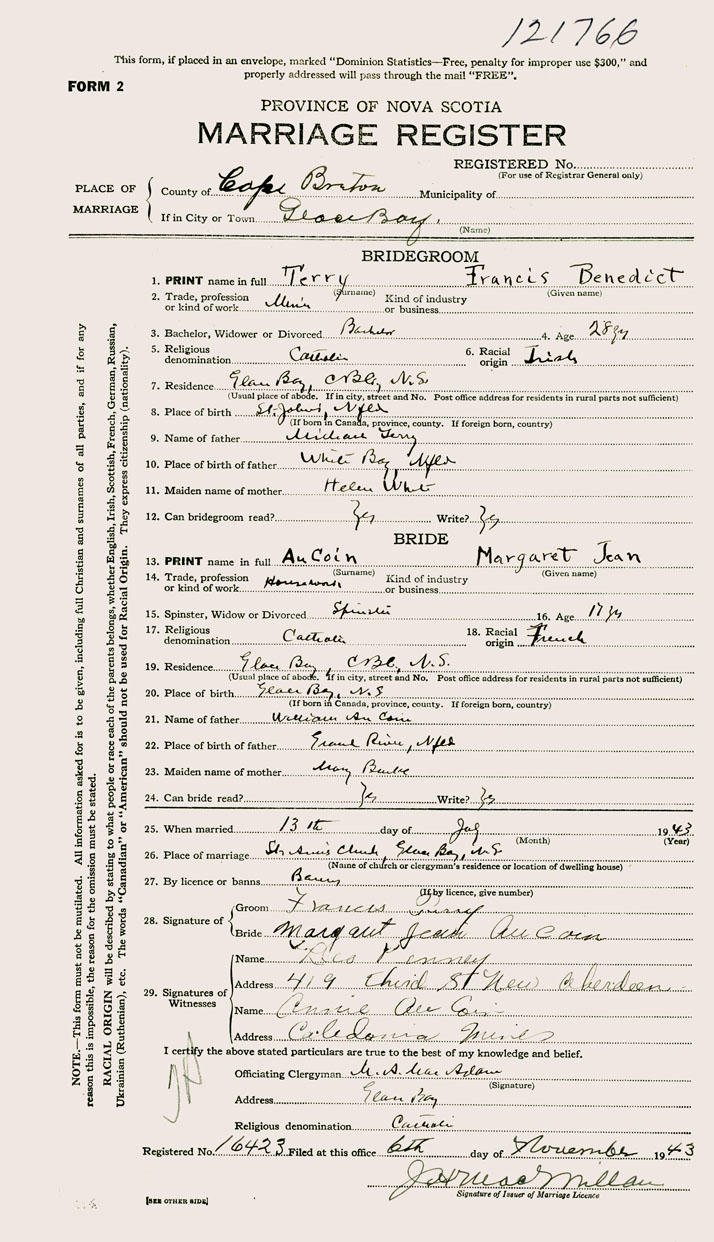 121766
This form, if placed in an envelope, marked "Dominion Statistics—Free, penalty for improper use $300," and
properly addressed will pass through the mail "FREE".
FORM 2
PROVINCE OF NOVA SCOTIA
MARRIAGE REGISTER
REGISTERED No.
(For use of Registrar General only)
PLACE OF MARRIAGE
County of Cape Breton Municipality of
If in City or Town Glace Bay.
(Name)
BRIDEGROOM
1. PRINT name in full Terry Francis Benedict
(Surname) (Given name)
2. Trade, profession or kind of work Miner Kind of industry or business
3. Bachelor, Widower or Divorced Bachelor 4. Age 28 yr
5. Religious denomination Catholic 6. Racial origin Irish
7. Residence Glace Bay, C.B.Co, N.S.
(Usual place of abode. If in city, street and No. Post office address for residents in rural parts not sufficient)
8. Place of birth St. John's, Nfld
(If born in Canada, province, county. If foreign born, country)
9. Name of father Michael Terry
10. Place of birth of father White Bay Nfld
11. Maiden name of mother Helen White
12. Can bridegroom read? Yes Write? Yes
BRIDE
13. PRINT name in full AuCoin Margaret Jean
(Surname) (Given name)
14. Trade, profession or kind of work Housework Kind of industry or business
15. Spinster, Widow or Divorced Spinster 16. Age 17 yr
17. Religious denomination Catholic 18. Racial origin French
19. Residence Glace Bay, C.B.Co, N.S.
(Usual place of abode. If in city, street and No. Post office address for residents in rural parts not sufficient)
20. Place of birth Glace Bay, N.S
(If born in Canada, province, county. If foreign born, country)
21. Name of father William Au Coin
22. Place of birth of father Grand River, Nfld
23. Maiden name of mother Mary Burke
24. Can bride read? Yes Write? Yes
25. When married 13th day of July 1943
(Month) (Year)
26. Place of marriage St. Ann's Church, Glace Bay, N.S
(Name of church or clergyman's residence or location of dwelling house)
27. By licence or banns Banns
(If by licence, give number)
28. Signature of
Groom Francis Terry
Bride Margaret Jean Aucoin
29. Signatures of Witnesses
Name Kenney
Address 419 Third St New Aberdeen
Name Annie Au Coin
Address Caledonia Mines
I certify the above stated particulars are true to the best of my knowledge and belief.
Officiating Clergyman M. A. MacAdam
(Signature)
Address Glace Bay
Religious denomination Catholic
Registered No. 16423 Filed at this office 6th day of November 1943
MacMillan
Signature of Issuer of Marriage Licence
[SEE OTHER SIDE]
NOTE.—This form must not be mutilated. All information asked for is to be given, including full Christian and surnames of all parties, and if for any
reason this is impossible, the reason for the omission must be stated.
RACIAL ORIGIN will be described by stating to what people or race each of the parents belongs, whether English, Irish, Scottish, French, German, Russian,
Ukrainian (Ruthenian), etc. The words "Canadian" or "American" should not be used for Racial Origin. They express citizenship (nationality).